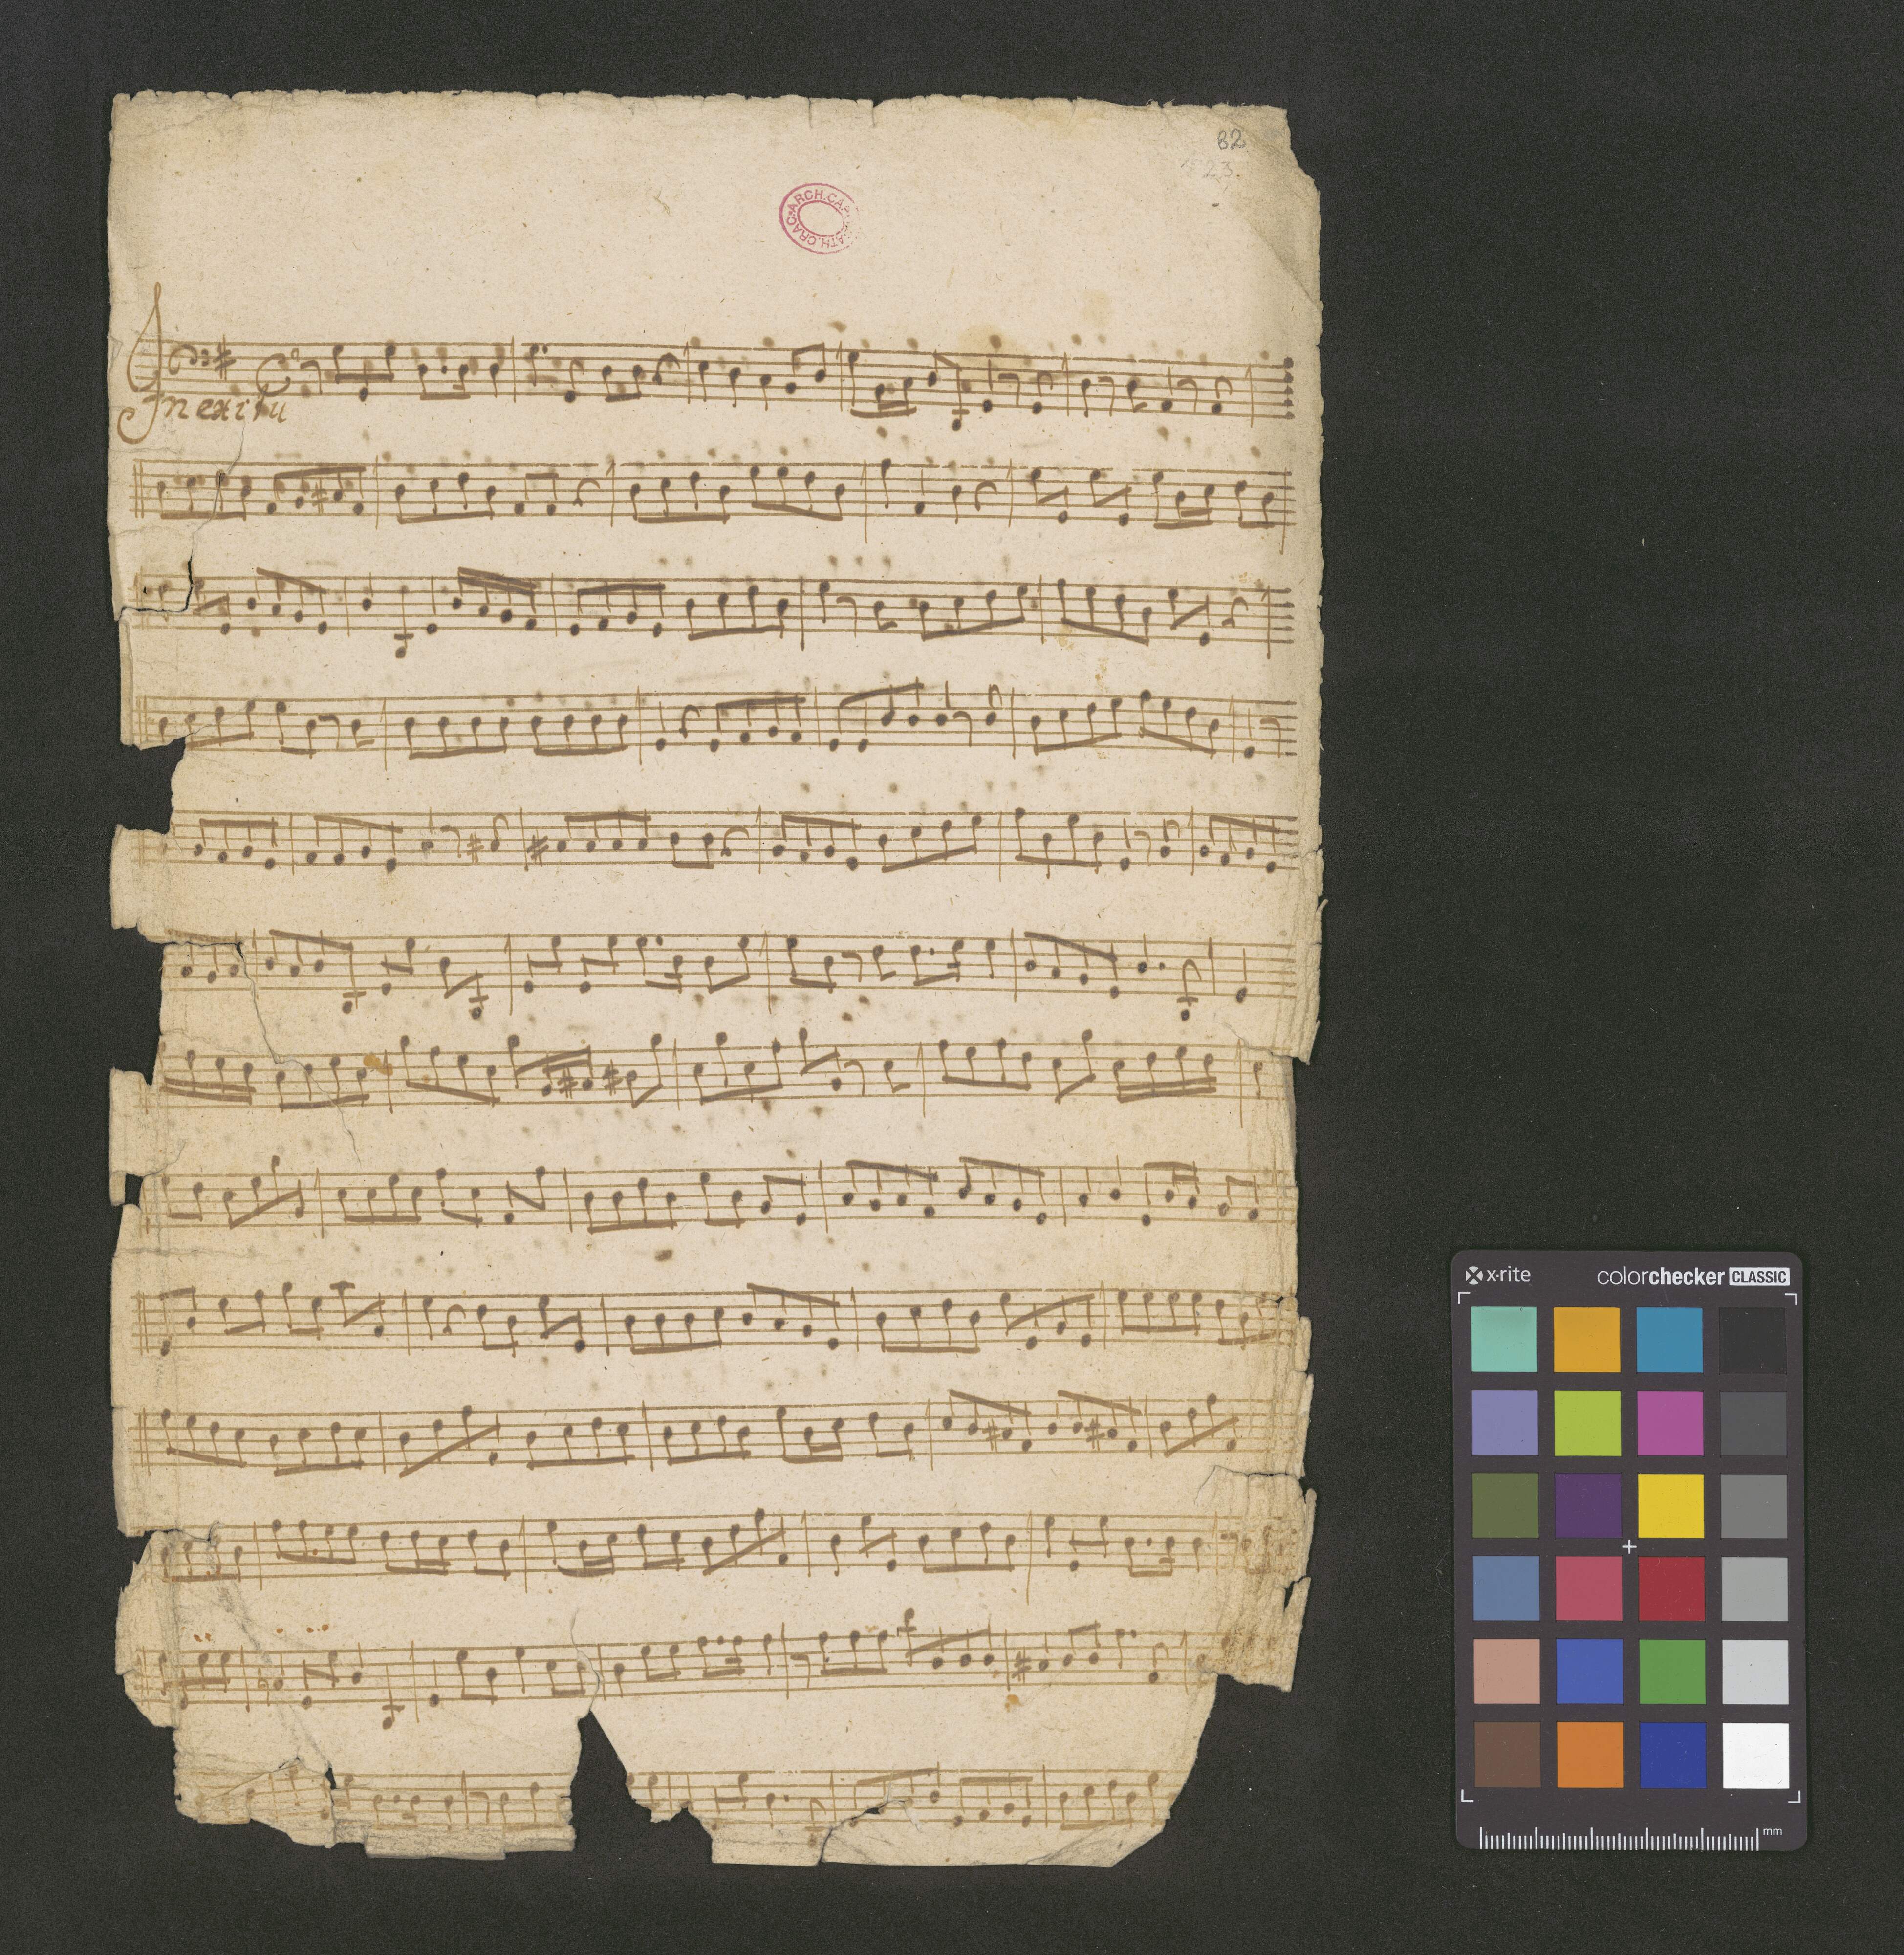 82
23.
ARCH.CAP.CATH.CRAC.
In exitu
x·rite
colorchecker CLASSIC
mm